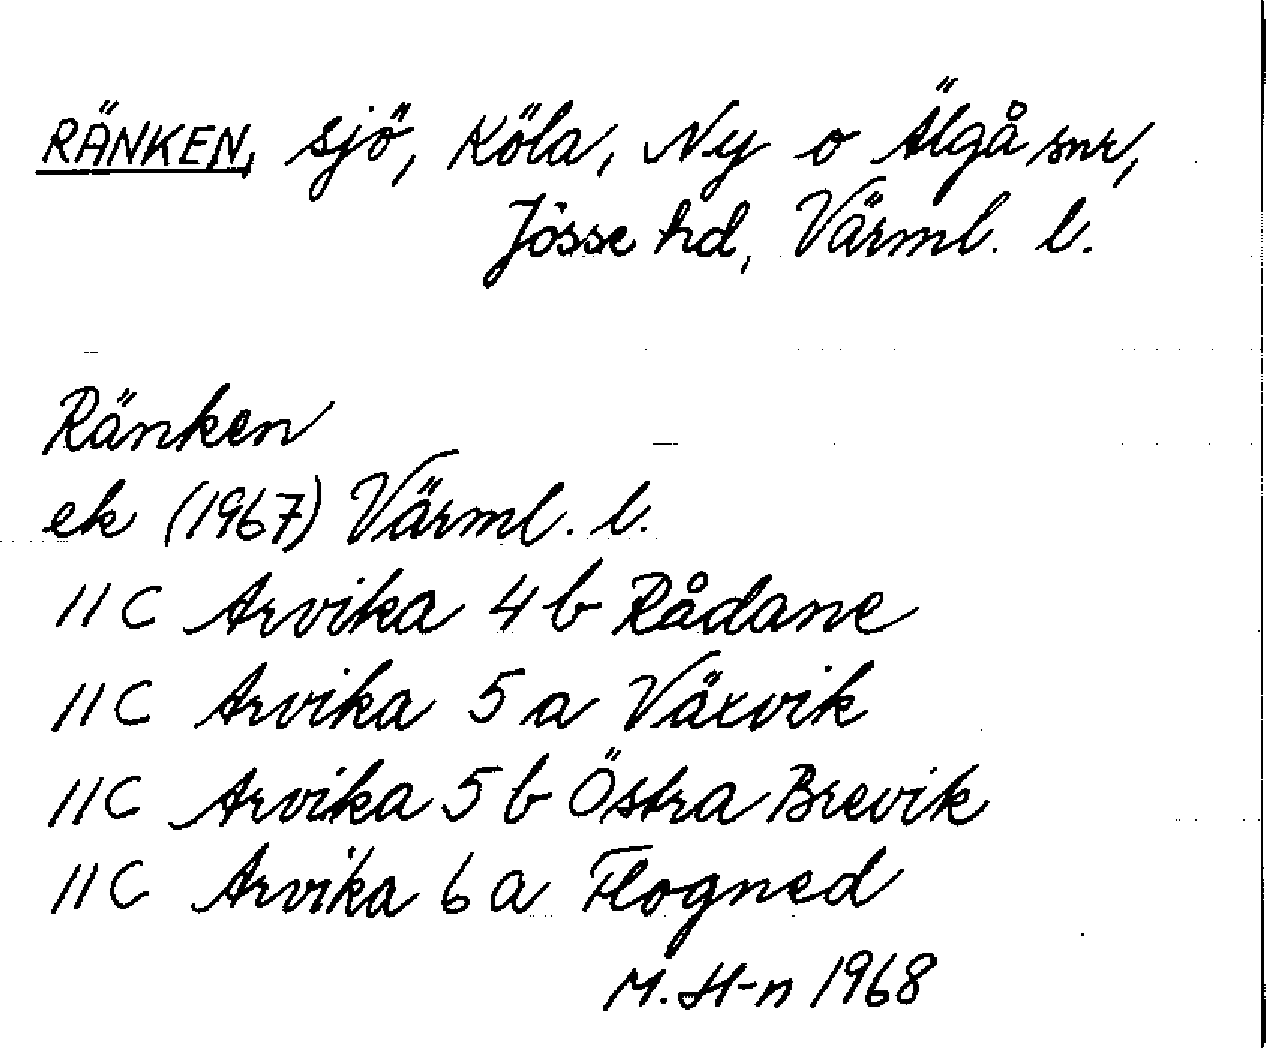 RÄNKEN, sjö, Köla, Ny o Älgå snr,
Jösse hd, Värml. l.
Ränken
ek (1967) Värml. l.
11 C Arvika 4 b Rådane
11 C Arvika 5 a Växvik
11 C Arvika 5 b Östra Brevik
11 C Arvika 6 a Flogned
M. H-n 1968